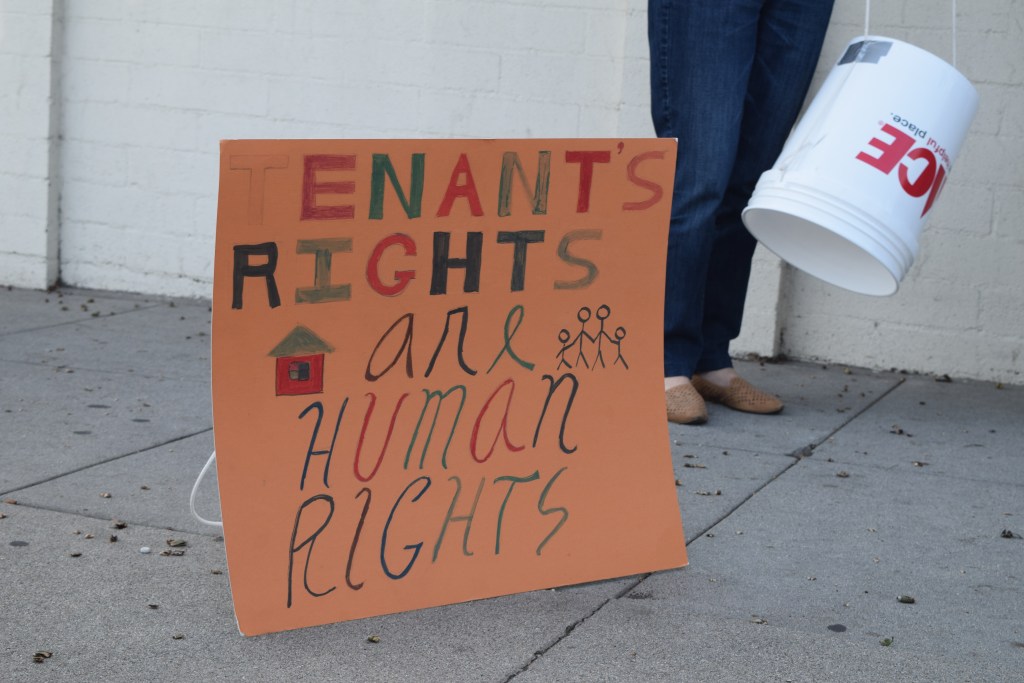 TENANT'S
RIGHTS
are
HUMAN
RIGHTS
ACE
helpful place.